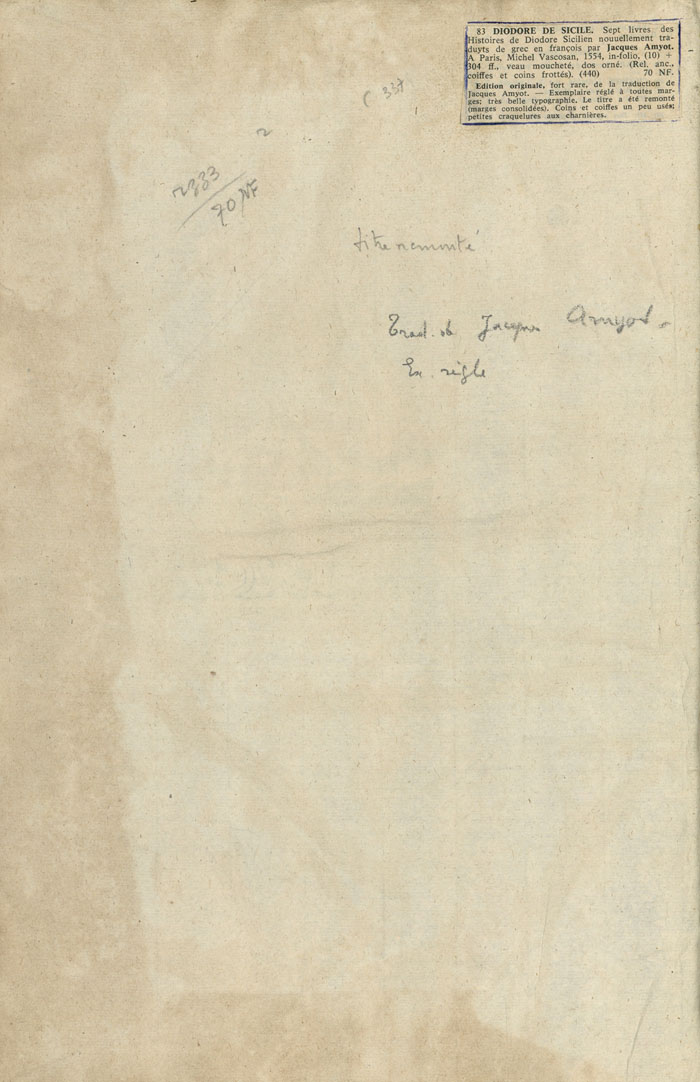 83 DIODORE DE SICILE. Sept livres des
Histoires de Diodore Sicilien nouuellement tra-
duyts de grec en françois par Jacques Amyot.
A Paris, Michel Vascosan, 1554, in-folio, (10) +
304 ff., veau moucheté, dos orné. (Rel. anc.,
coiffes et coins frottés). (440) 70 NF.
Edition originale, fort rare, de la traduction de
Jacques Amyot. — Exemplaire réglé à toutes mar-
ges; très belle typographie. Le titre a été remonté
(marges consolidées). Coins et coiffes un peu usés;
petites craquelures aux charnières.
70 NF
titre remonté
Trad. de Jacques Amyot.
Ex. réglé